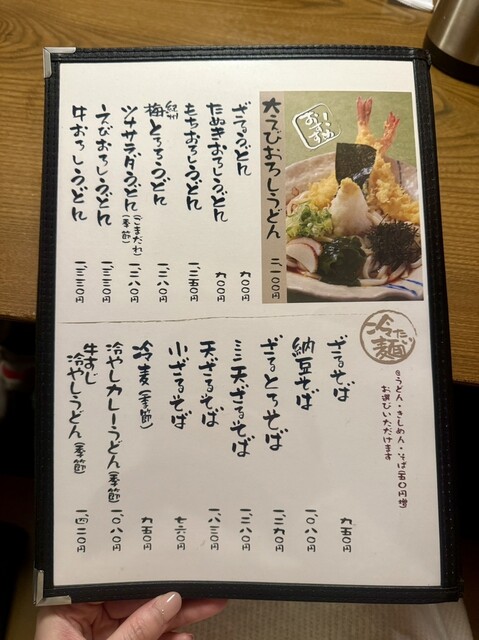 おすすめ
大えびおろしうどん 二、一〇〇円
ざるうどん 九〇〇円
たぬきおろしうどん 九〇〇円
もちおろしうどん 一、二五〇円
紀州梅とろろうどん 一、二八〇円
ツナサラダうどん(ごまだれ)(季節) 一、二八〇円
えびおろしうどん 一、三三〇円
牛おろしうどん 一、三三〇円
冷たい麺
◎うどん・きしめん・そば(五〇円増)
お選びいただけます
ざるそば 九五〇円
納豆そば 一、〇八〇円
ざるとろそば 一、二九〇円
ミニ天ざるそば 一、二八〇円
天ざるそば 一、八三〇円
小ざるそば 七六〇円
冷麦(季節) 九五〇円
冷やしカレーうどん(季節) 一、〇八〇円
牛すじ冷やしうどん(季節) 一、四二〇円